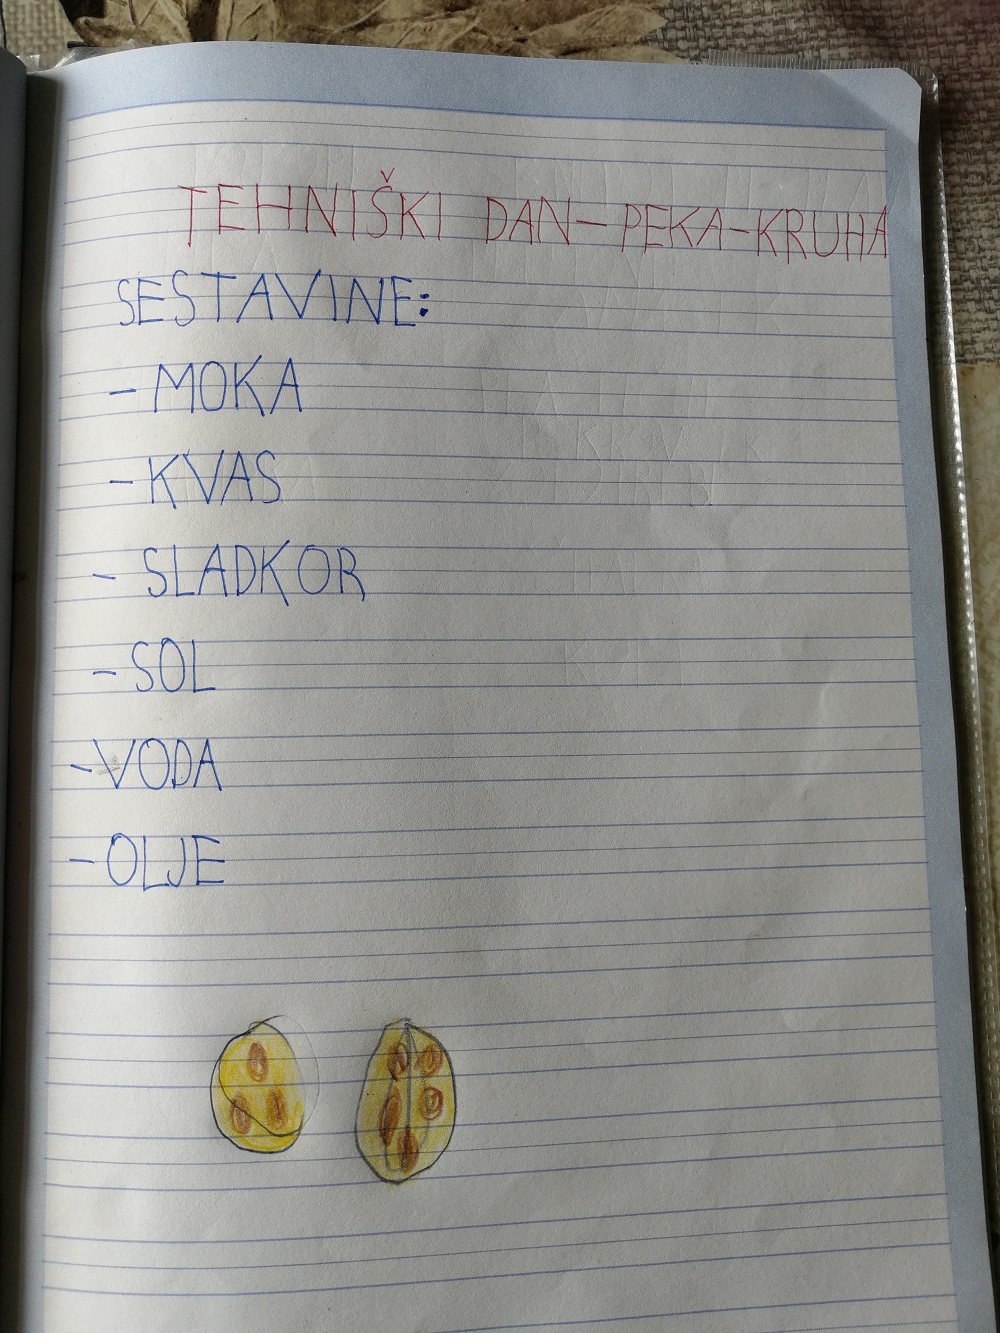 TEHNIŠKI DAN-PEKA-KRUHA
SESTAVINE:
- MOKA
- KVAS
- SLADKOR
- SOL
- VODA
- OLJE